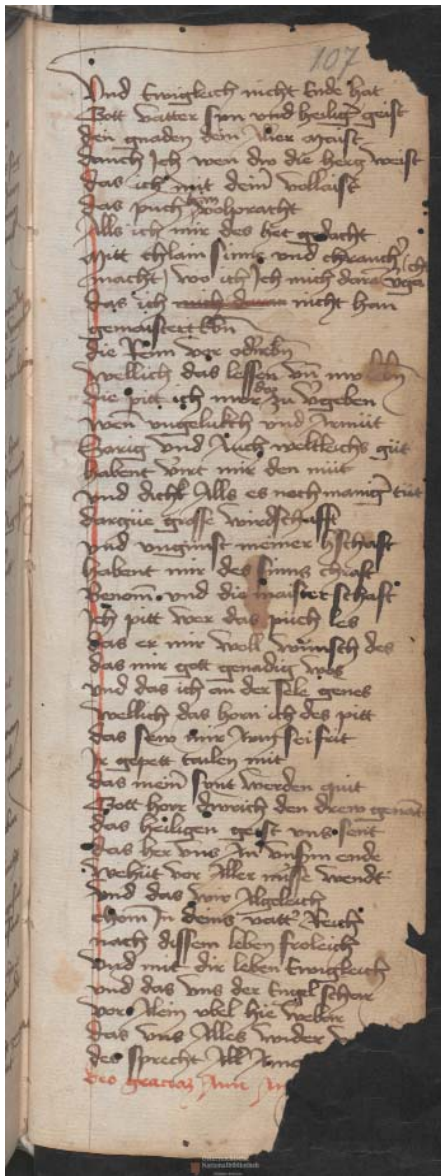 107
Vnd Ewigleich nicht Ende hat
Gott vatter sun vnd heilig geist
den gnaden dein
Jch die herz weist
das ich mit deim vollaist
das puch volpracht
Alls ich mir des het gedacht
Mitt chlain sinn vnd chranch
macht wo ich mich daran
das ich nicht han
gemaistert
die Reim vor
wellich das lessen vnd
die pitt ich mir das zu vgeben
wen vngelukch vnd Armüt
Sarig vnd Auch weltleichs güt
habent mir den müt
vnd dicht Alls es noch manig tüt
grosse wirdschafft
vnd vngunst meiner hschaft
habent mir des sinns chraft
Benom vnd die maisterschaft
Jch pitt wer das püch les
das er mir woll wünsch des
das mir gott genadig wos
vnd das ich an der sele genes
wellich das horn ich des pitt
das sew mir seifrit
Jr gepett tailen mit
das mein sünt werden quit
Gott herr dwrich den drew
das heiligen geist vns sent
das her vns An vnserm ende
Behüt vor Aller misse wendt
vnd das wir Algeleich
chom Jn deins vatt Reich
nach dissem leben froleich
vnd mit dir leben Ewigleich
vnd das vns der Engel schar
vor Alem vbel hie bewar
das vns Alles wider
des sprecht All
deo gracias